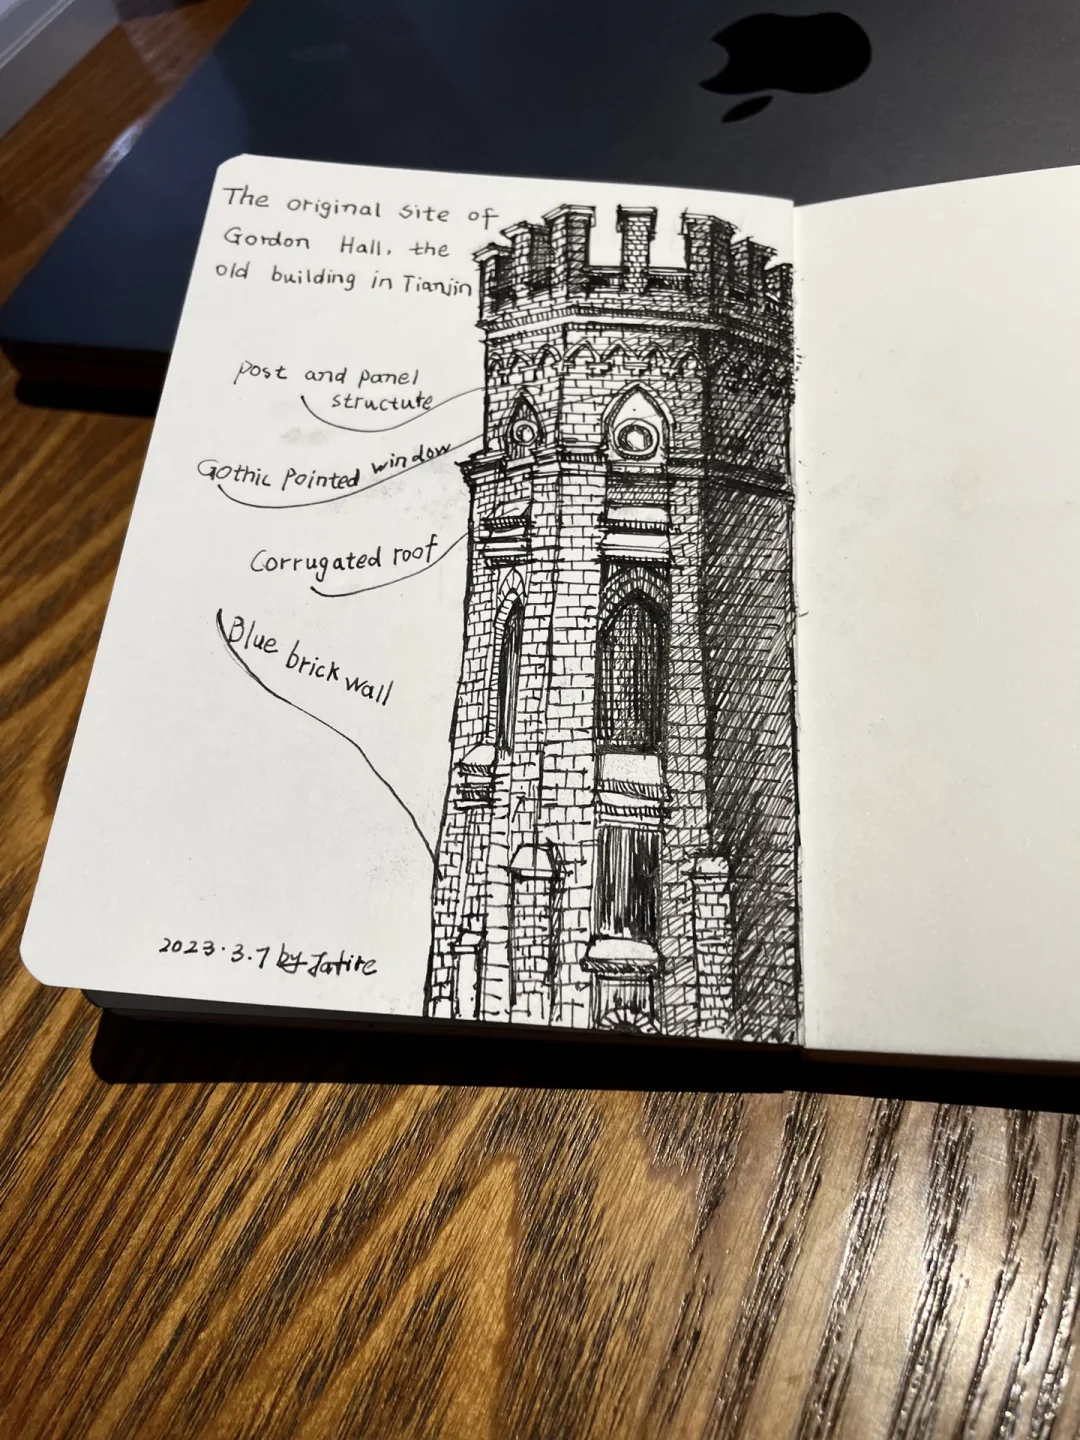 The original site of
Gordon Hall, the
old building in Tianjin
post and panel
structute
Gothic pointed window
Corrugated roof
Blue brick wall
2023.3.7 by